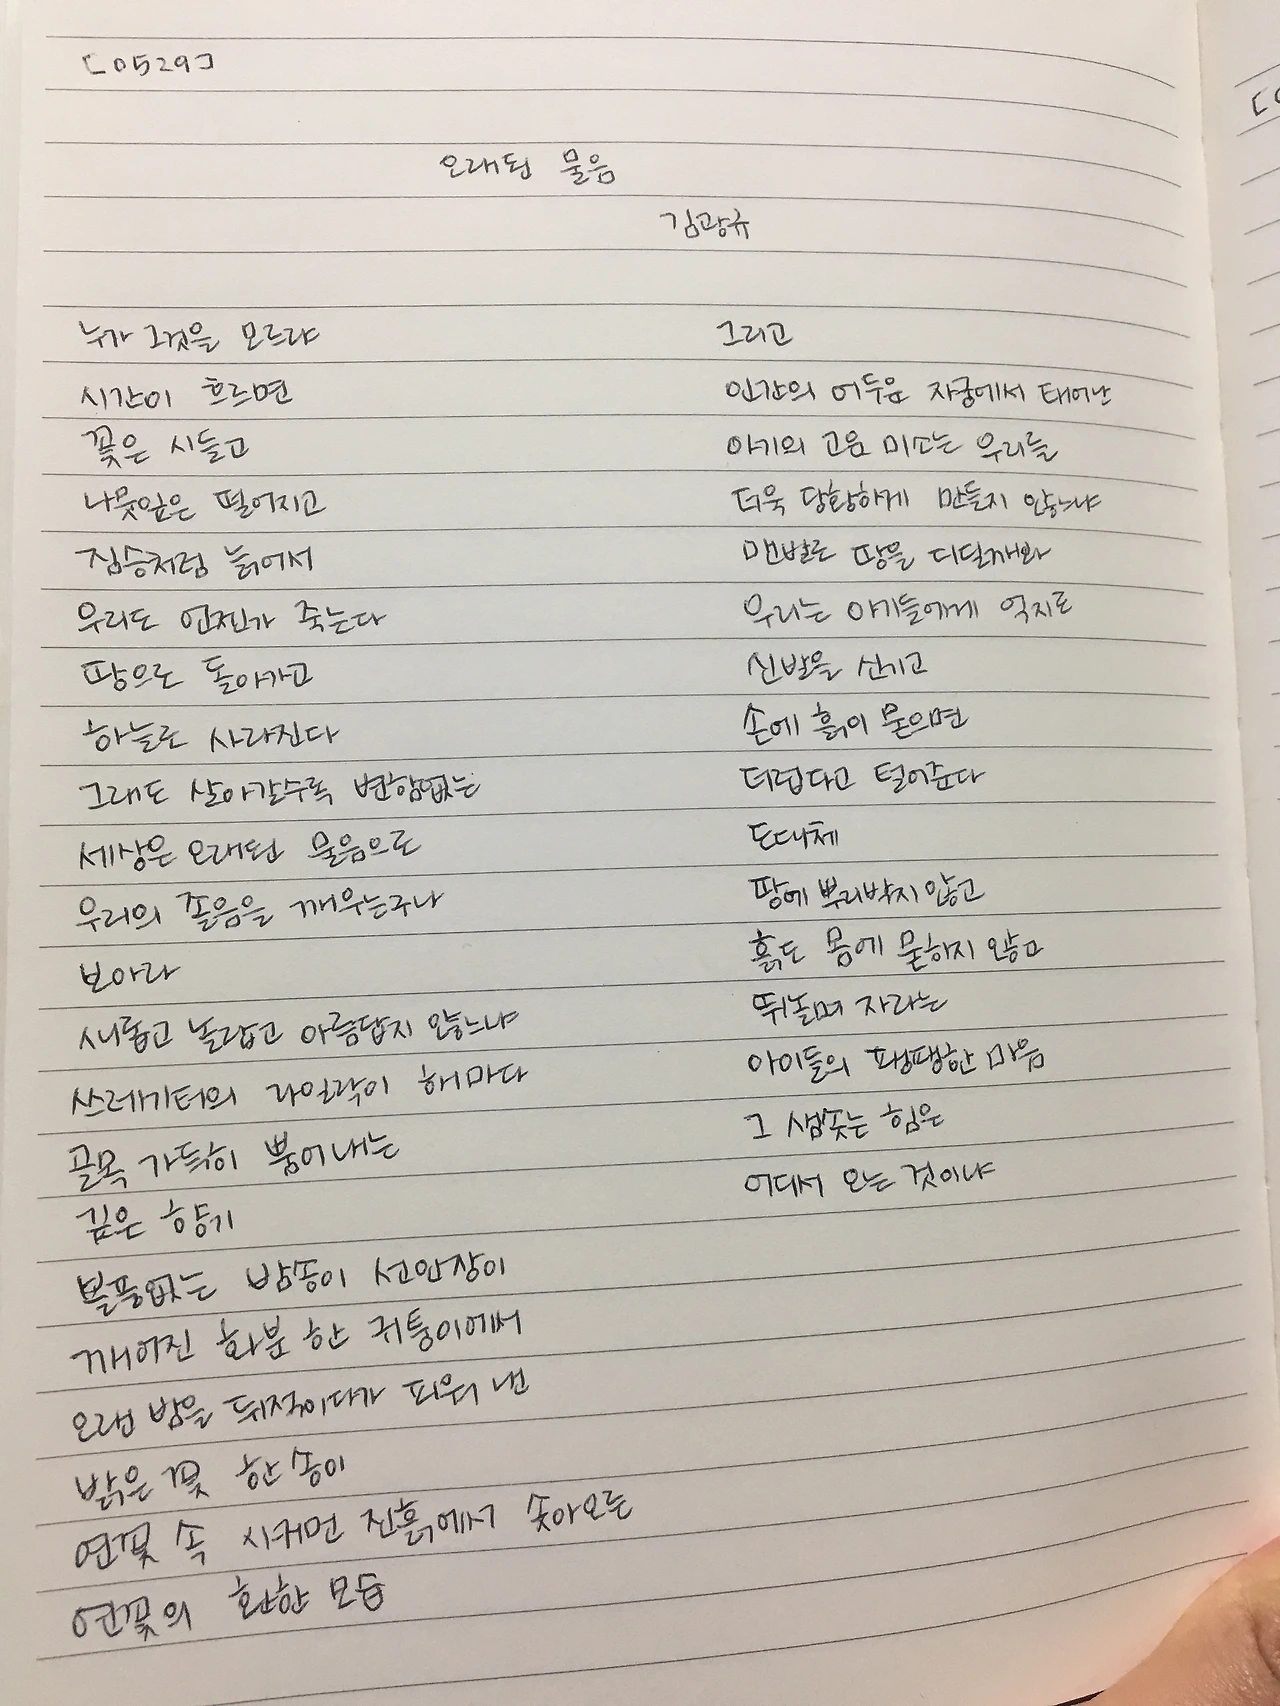 [0529]
오래된 물음
김광규
누가 그것을 모르랴
시간이 흐르면
꽃은 시들고
나뭇잎은 떨어지고
짐승처럼 늙어서
우리도 언젠가 죽는다
땅으로 돌아가고
하늘로 사라진다
그래도 살아갈수록 변함없는
세상은 오래된 물음으로
우리의 졸음을 깨우는구나
보아라
새롭고 놀랍고 아름답지 않느냐
쓰레기터의 라일락이 해마다
골목 가득히 뿜어내는
깊은 향기
볼품없는 밤송이 선인장이
깨어진 화분 한 귀퉁이에서
오랜 밤을 뒤척이다가 피워 낸
밝은 꽃 한 송이
연꽃 속 시커먼 진흙에서 솟아오른
연꽃의 환한 모습
그리고
인간의 어두운 자궁에서 태어난
아기의 고운 미소는 우리를
더욱 당황하게 만들지 않느냐
맨발로 땅을 디딜까봐
우리는 아기들에게 억지로
신발을 신기고
손에 흙이 묻으면
더럽다고 털어준다
도대체
땅에 뿌리박지 않고
흙도 몸에 묻히지 않고
뛰놀며 자라는
아이들의 팽팽한 마음
그 샘솟는 힘은
어디서 오는 것이냐